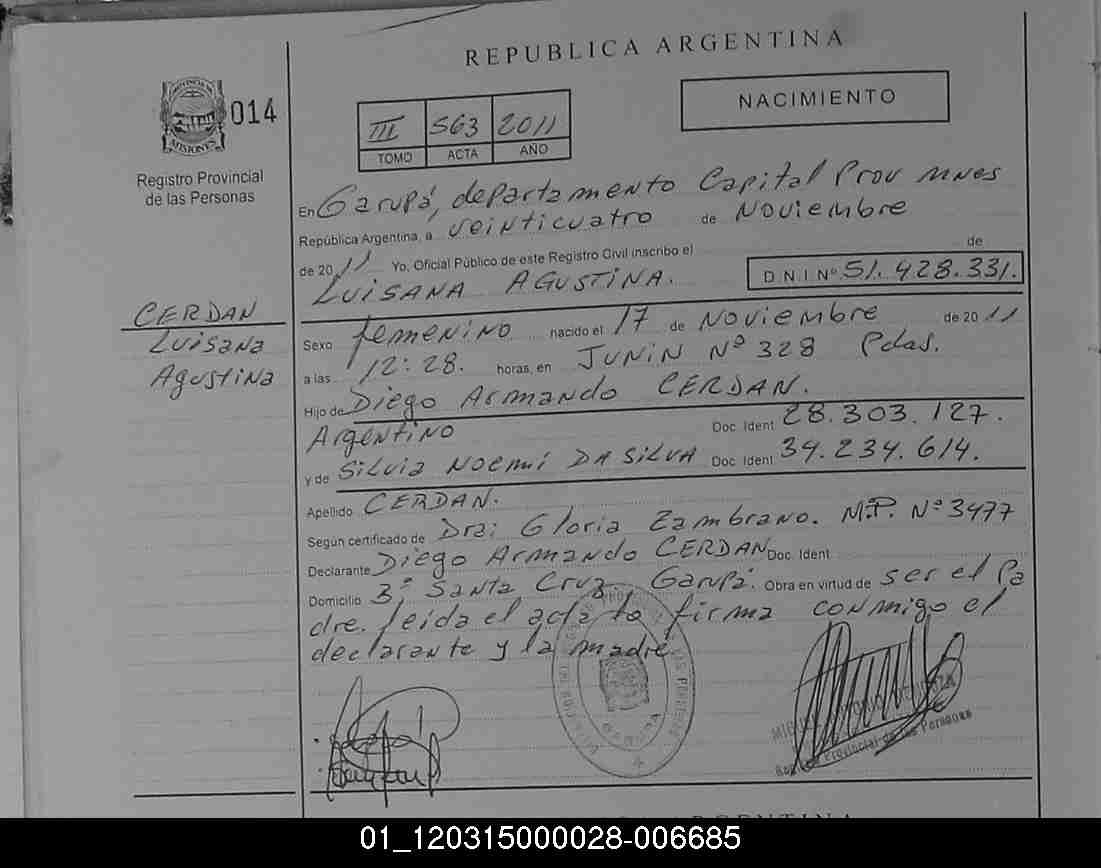 REPUBLICA ARGENTINA
NACIMIENTO
PROVINCIA DE
MISIONES
014
III 563 2011
TOMO ACTA AÑO
Registro Provincial
de las Personas
En Garupá, departamento Capital Prov mnes
República Argentina, a veinticuatro de Noviembre
de 2011 Yo, Oficial Público de este Registro Civil inscribo el de
LUISANA AGUSTINA. D.N.I Nº 51.428.331.
CERDAN
Luisana
Agustina
Sexo femenino nacido el 17 de Noviembre de 2011
a las 12:28. horas, en JUNIN Nº 328 Pdas.
Hijo de Diego Armando CERDAN.
Argentino Doc. Ident 28.303.127.
y de Silvia Noemí DA SILVA Doc. Ident 34.234.614.
Apellido CERDAN.
Según certificado de Dra; Gloria Zambrano. M.P. Nº 3477
Declarante Diego Armando CERDAN Doc. Ident
Domicilio 3º Santa Cruz. Garupá. Obra en virtud de ser el Pa
dre. leida el acta la firma conmigo el
declarante y la madre.
Registro Provincial de las Personas
01_120315000028-006685